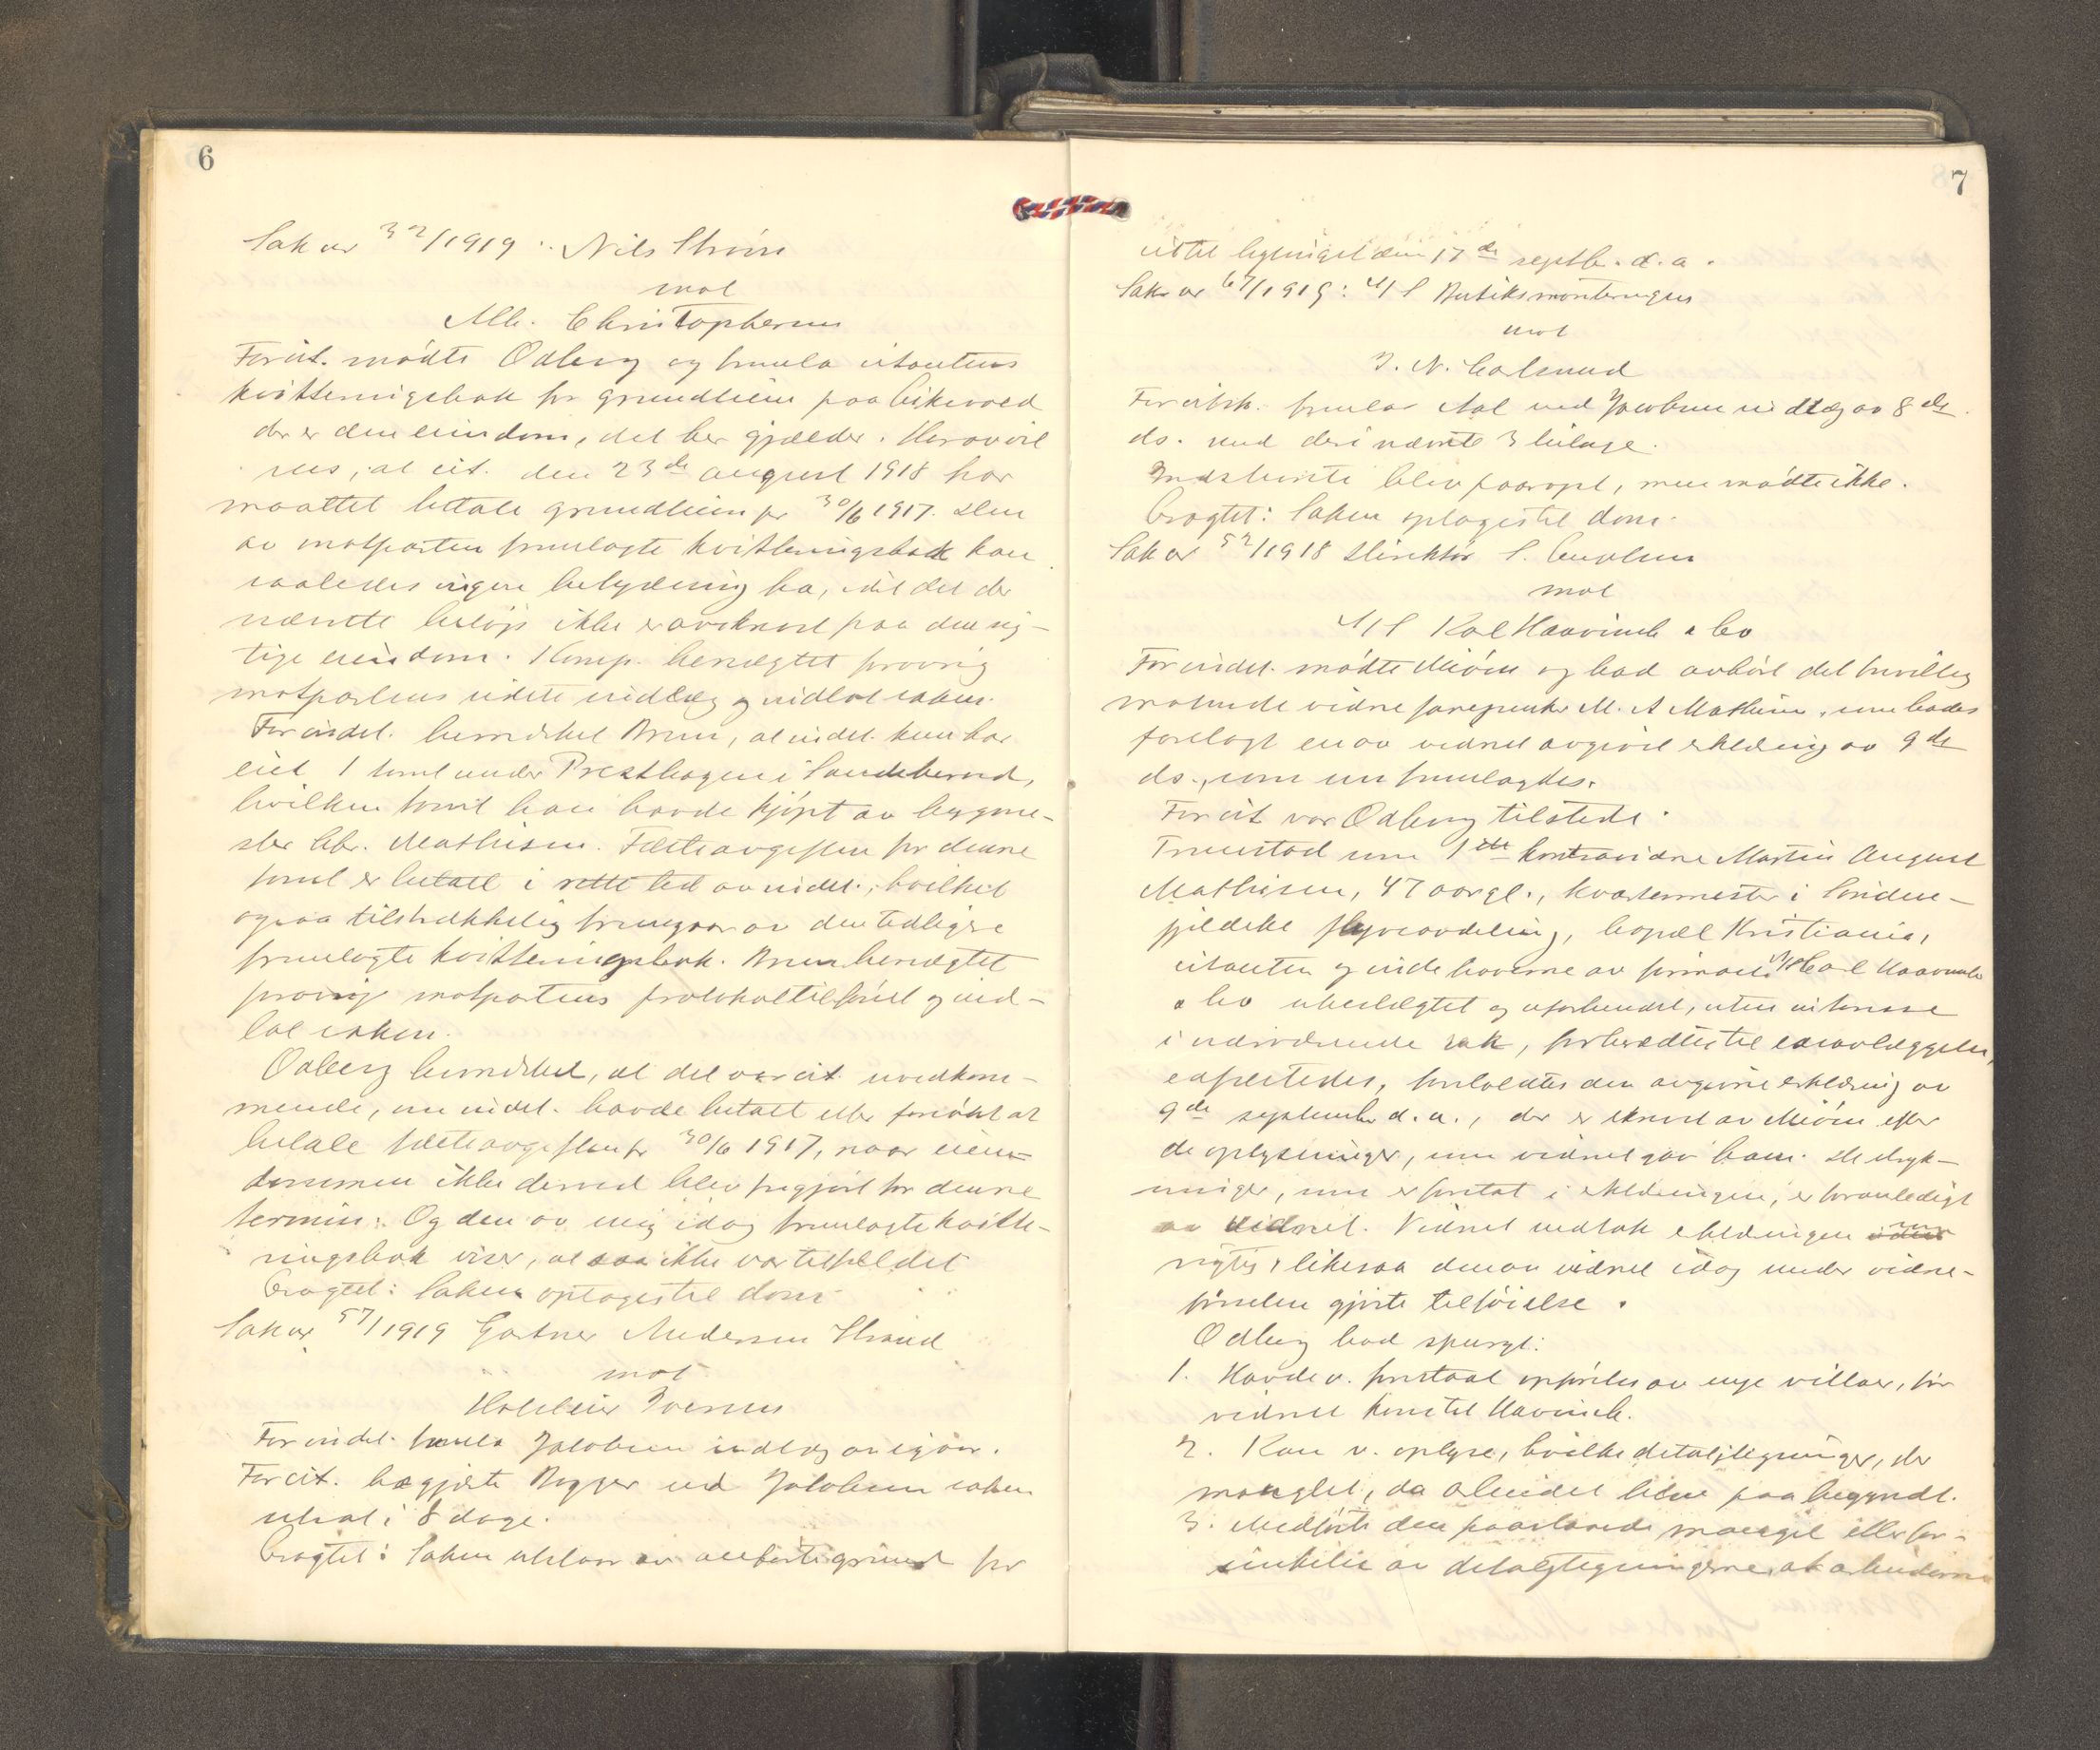 6
Sak nr 32/1919 : Nils Strøm
mot
Alb. Christophersen
For cit. mødte Odberg og freml. citantens
kvitteringsbok for grundleien paa
der er den eiendom, det her gjælder. Herav vil
sees, at cit. den 23de august 1918 har
maattet betale grundleien pr 30/6 1917. Den
av motparten fremlagte kvitteringsbok kan
saaledes ingen betydning ha, idet det der
nævnte beløp ikke er avskrevet paa den rig-
tige eiendom. Komp. benegtet forøvrig
motpartens sidste indlæg og indlot saken.
For indst. bemerket Brun, at indst. kun har
eiet 1 tomt under Presthagen i Sandeherred,
hvilken tomt han havde kjøpt av bygme-
ster Chr. Mathisen. Fæsteavgiften for denne
tomt er betalt i rette tid av indst., hvilket
ogsaa tilstrækkelig fremgaar av den tidligere
fremlagte kvitteringsbok. Brun benegtet
forøvrig motpartens protokoltilførsel og ind-
lot saken.
Odberg bemerket, at det var cit. uvedkom-
mende, om indst. havde betalt eller forsøkt at
betale fæsteavgiften pr 30/6 1917, naar eien-
dommen ikke derved blev frigjort for denne
termin. Og den av mig idag fremlagte kvitte-
ringsbok viser, at saa ikke var tilfældet
Eragtet: Saken optages til dom
Sak nr 57/1919 Gartner Andersen Strand
mot
Halvdan Iversen
For indst. freml. Jakobsen indlæg av igaar.
For cit. begjærte Bugge ved Jakobsen saken
utsat i 8 dage.
Eragtet: Saken utstaar av anførte grund for
7
cit til bytinget den 17de septbr. d.a.
Sak nr 67/1919: A/S Butiksmonteringen
mot
J. N.
For citsk. fremlas ved Jacobsen indlæg av 8de
ds. med deri nævnte 3 bilage.
Indstevnte blev paaropt, men mødte ikke.
Eragtet: Saken optages til dom.
Sak nr 52/1918 Direktør S.
mot
A/S Karl Haavinck & Co
For indst. mødte Miøen og bad avhørt det frivillig
møtende vidne M. A Mathisen, som bades
forelagt en av vidnet avgivet erklæring av 9de
ds., som nu fremlagdes.
For cit var Odberg tilstede.
Fremstod som 1ste kontravidne Martin August
Mathisen, 47 aar gl., kvartermester i Sønden-
fjeldske flyveavdeling, bopæl Kristiania,
citanten og indehaverne av firmaet A/S Carl Haavinck
& Co ubeslegtet og ubesvogret, uten interesse
i nærværende sak, forberedtes til edsavlæggelse,
edfæstedes, forholdtes den avgivne erklæring av
9de september d.a., der er skrevet av Miøen efter
de oplysninger, som vidnet gav ham. De uttryk-
ninger, som er foretat i erklæringen, er foranlediget
av vidnet. Vidnet vedtok erklæringen som
rigtig, likesaa den av vidnet idag under vidne-
førselen gjorte tilføielse.
Odberg bad spurgt:
1. Havde v. forestaat opførelse av nye villaer, før
vidnet kom til Haavinck.
2. Kan v. oplyse, hvilke detaljtegninger, der
manglet, da arbeidet blev paabegyndt.
3. Medførte den paastaaede mangel eller for-
sinkelse av detaljtegningerne, at arbeiderne